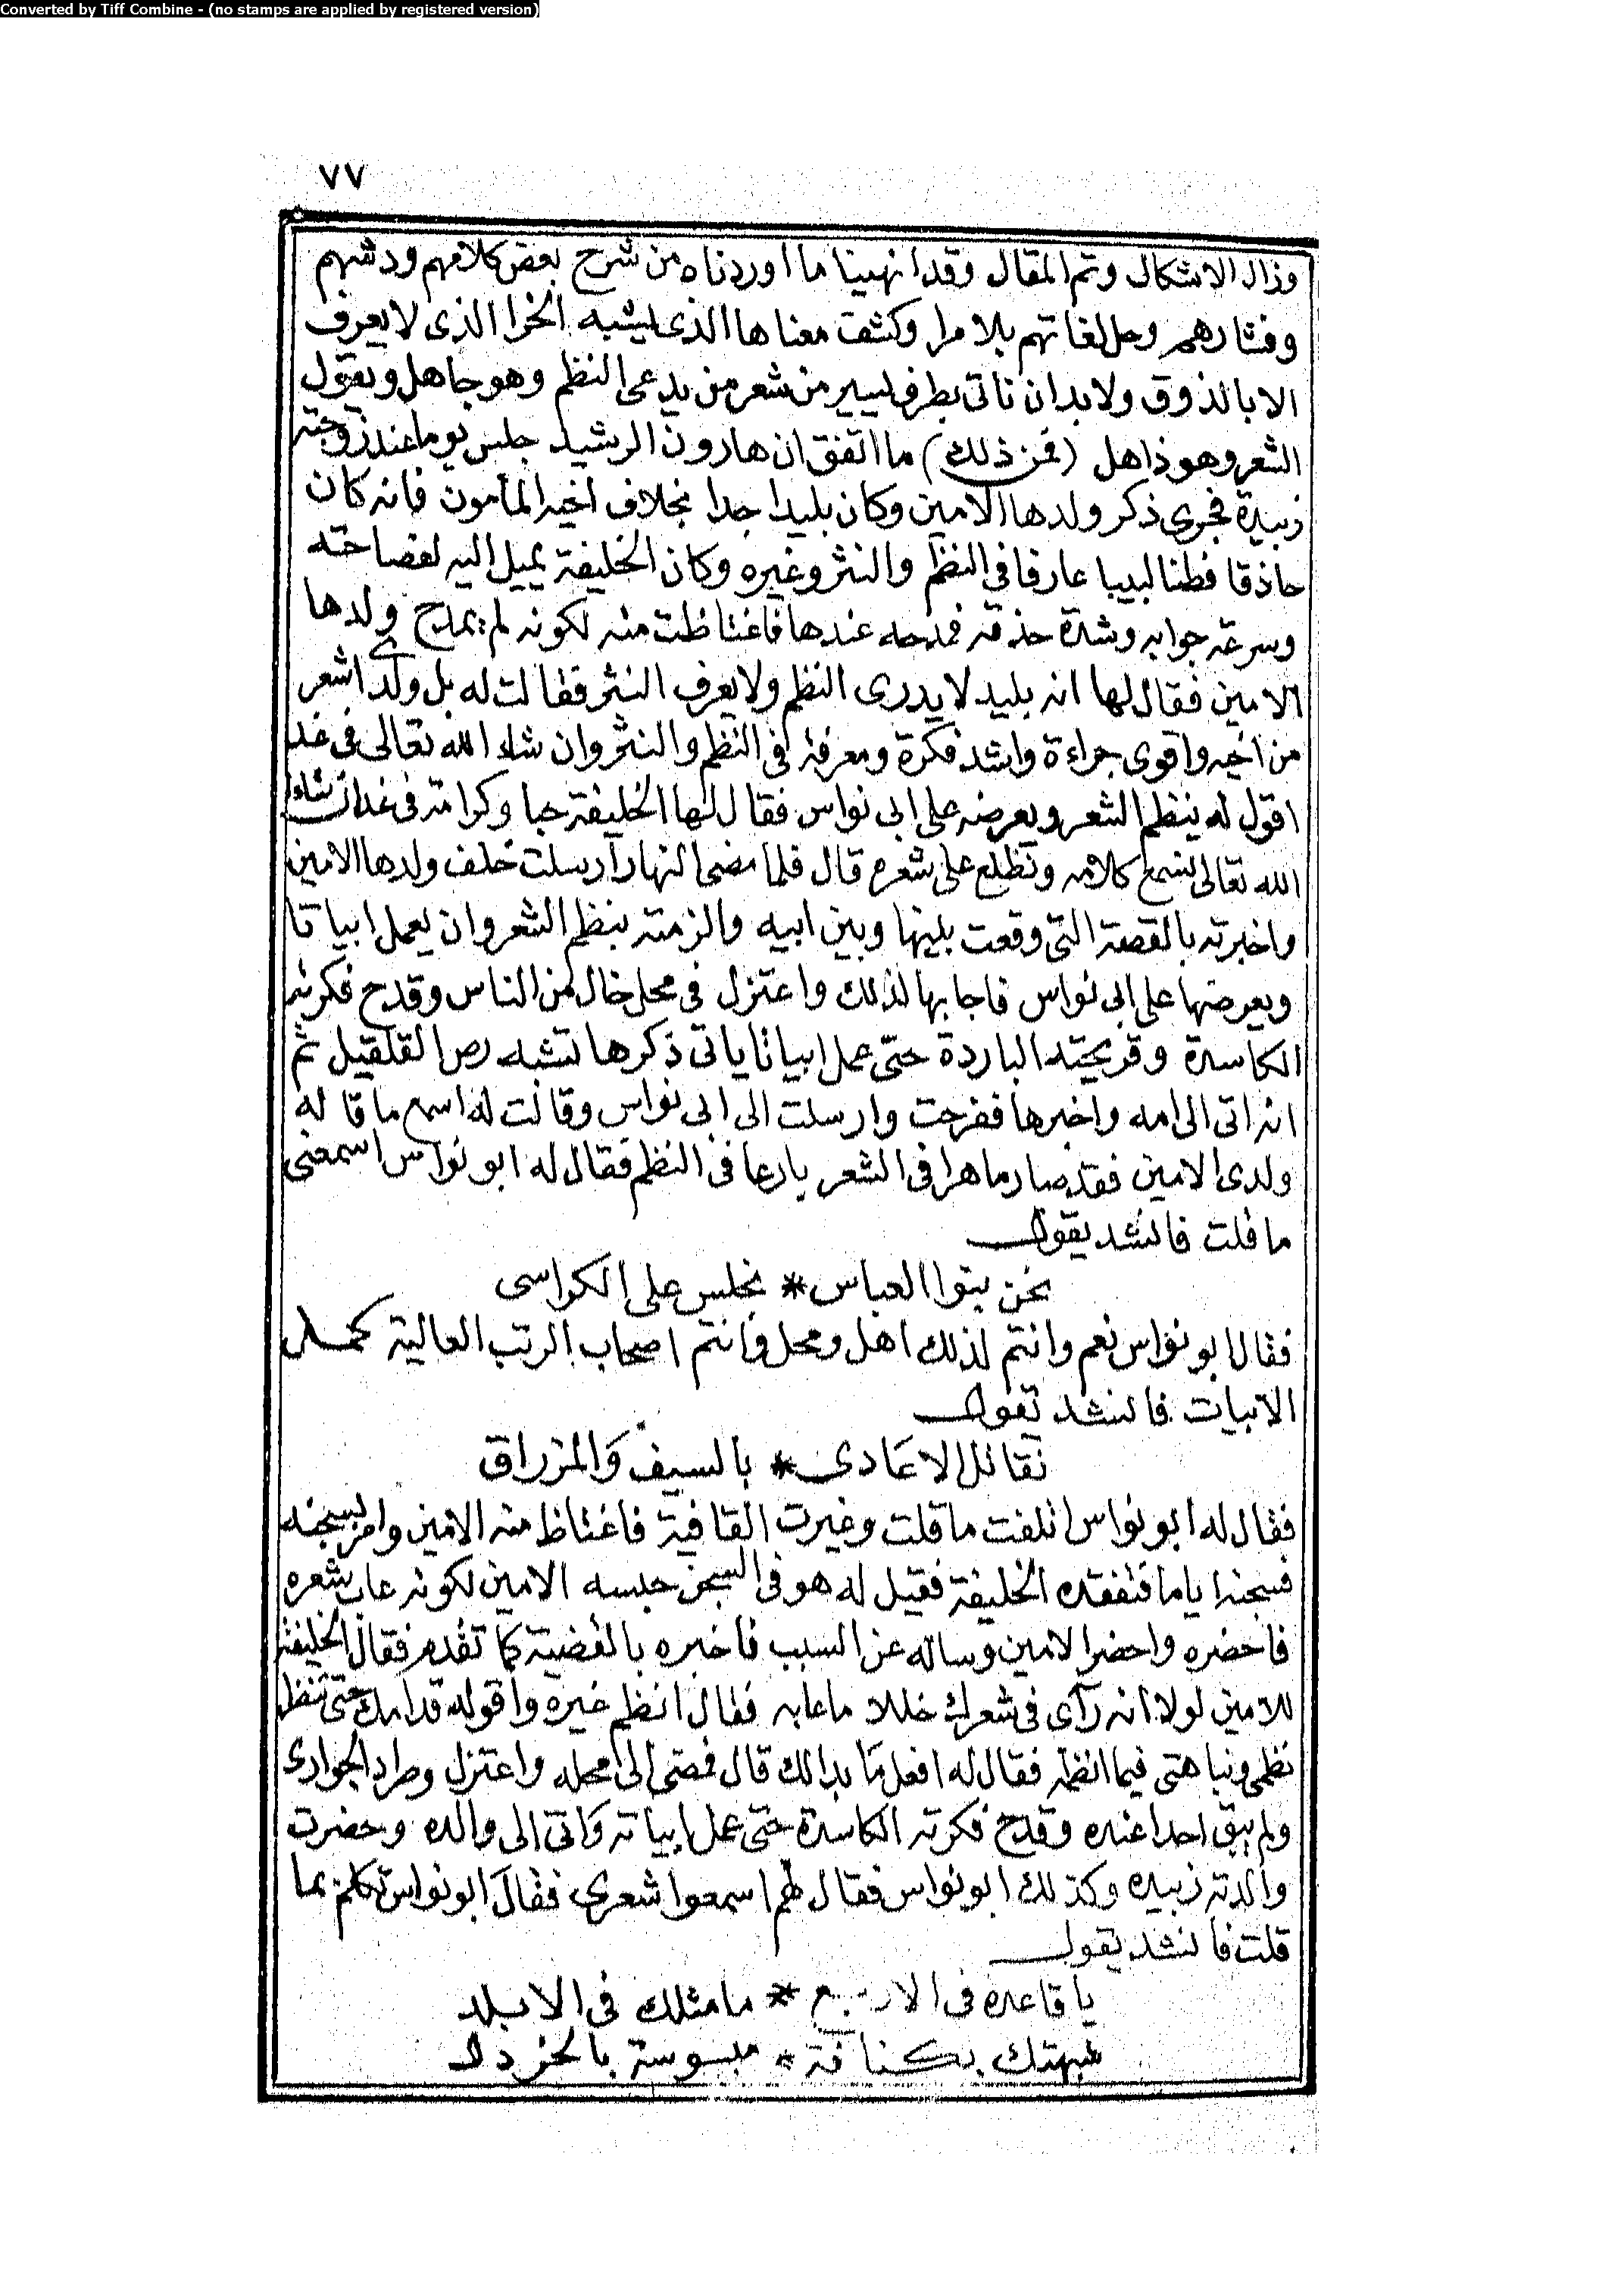 Converted by Tiff Combine - (no stamps are applied by registered version)
٧٧
وزال الاشكال وتم المقال وقد انهينا ما اوردناه من شرح بعض كلامهم ودشهم
وفشارهم وحل لغاتهم بلا مرا وكشف معناها الذى يشبه الخرا الذى لا يعرف
الا بالذوق ولا بد ان ناتى بطرف يسير من شعر من يدعى النظم وهو جاهل ويقول
الشعر وهو ذاهل (فمن ذلك) ما اتفق ان هارون الرشيد جلس يوما عند زوجته
زبيدة فجرى ذكر ولدها الامين وكان بليدا جدا بخلاف اخيه المأمون فانه كان
حاذقا فطنا لبيبا عارفا فى النظم والنثر وغيره وكان الخليفة يميل اليه لفصاحته
وسرعة جوابه وشدة حذقه فمدحه عندها فاغتاظت منه لكونه لم يمدح ولدها
الامين فقال لها انه بليد لا يدرى النظم ولا يعرف النثر فقالت له بل ولدى اشعر
من اخيه واقوى جراءة واشد فكرة ومعرفة فى النظم والنثر وان شاء الله تعالى فى غد
اقول له ينظم الشعر ويعرضه على ابى نواس فقال لها الخليفة حبا وكرامة فى غد ان شاء
الله تعالى نسمع كلامه ونطلع على شعره قال فلما مضى النهار ارسلت خلف ولدها الامين
واخبرته بالقصة التى وقعت بينها وبين ابيه والزمته بنظم الشعر وان يعمل ابياتا
ويعرضها على ابى نواس فاجابها لذلك واعتزل فى محل خال من الناس وقدح فكرته
الكاسدة وقريحته الباردة حتى عمل ابياتا ياتى ذكرها تشبه رص القلقيل ثم
انه اتى الى امه واخبرها ففرحت وارسلت الى ابى نواس وقالت له اسمع ما قاله
ولدى الامين فقد صار ماهرا فى الشعر بارعا فى النظم فقال له ابو نواس اسمعنى
ما قلت فانشد يقول
نحن بنوا العباس * نجلس على الكراسى
فقال ابو نواس نعم وانتم لذلك اهل ومحل وانتم اصحاب الرتب العالية كمل
الابيات فانشد يقول
نقاتل الاعادى * بالسيف والمزراق
فقال له ابو نواس اتلفت ما قلت وغيرت القافية فاغتاظ منه الامين وامر بسجنه
فسجنه اياما فتفقده الخليفة فقيل له هو فى السجن حبسه الامين لكونه عاب شعره
فاحضره واحضر الامين وساله عن السبب فاخبره بالقضية كما تقدم فقال الخليفة
للامين لولا انه رآى فى شعرك خللا ما عابه فقال انظم غيره واقوله قدامك حتى تنظر
نظمى ونباهتى فيما انظمه فقال له افعل ما بدالك قال فمضى الى محله واعتزل وطرد الجوارى
ولم يبق احدا عنده وقدح فكرته الكاسدة حتى عمل ابياته واتى الى والده وحضرت
والدته زبيده وكذلك ابو نواس فقال لهم اسمعوا شعرى فقال ابو نواس تكلم بما
قلت فانشد يقول
يا قاعدة فى الاربع * ما مثلك فى الابلد
شبهتك بكنافة * مبسوسة بالخردل